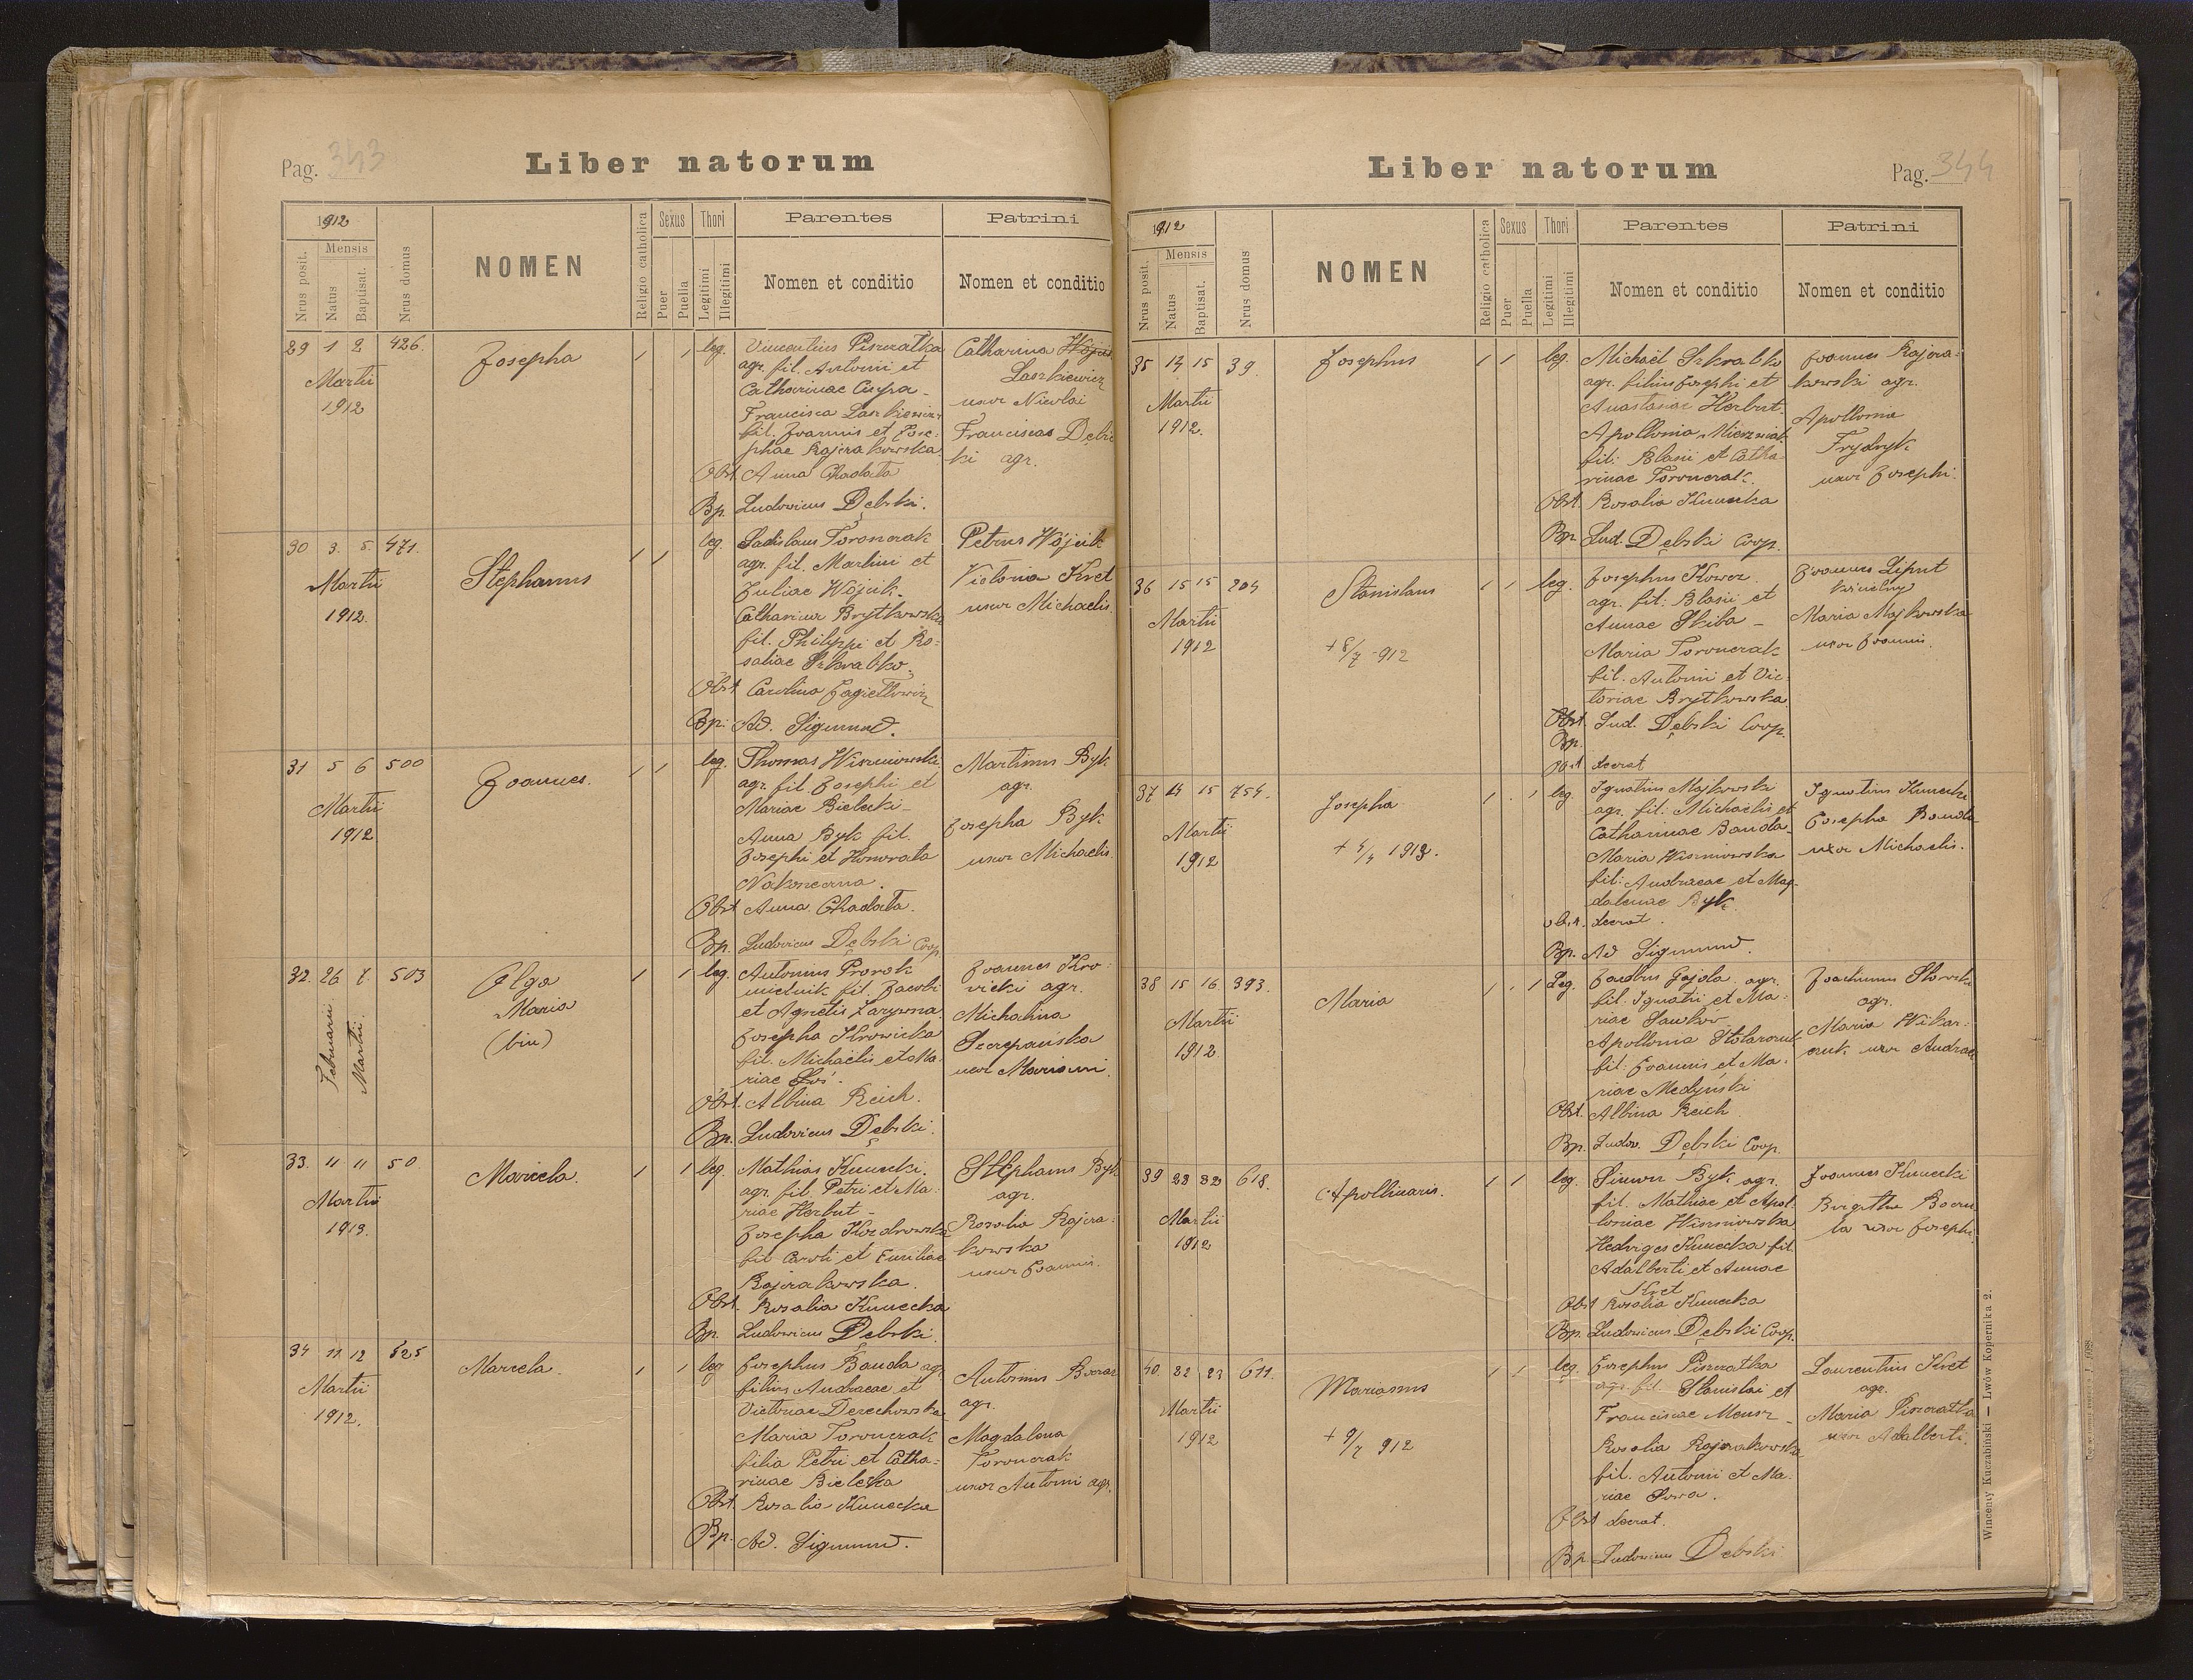 Pag. 343
Liber natorum
1912
Mensis
Nrus posit.
Natus
Baptisat.
Nrus domus
NOMEN
Religio catholica
Sexus
Puer
Puella
Thori
Legitimi
Illegitimi
Parentes
Nomen et conditio
Patrini
Nomen et conditio
29 1 2 426.
Martii
1912
Josepha
1 1 leg.
Vincentius Piszczatka
agr. fil. Antonii et
Catharinae Cupa -
Francisca Laszkiewicz
fil. Joannis et Jose-
phae Rajzakowska
Obst. Anna Chadata
Bp. Ludovicus Dębski.
Catharina Wójcik
Laszkiewicz
uxor Nicolai
Franciscus Dębi
ki agr.
30 3. 5. 471.
Martii
1912.
Stephanus
1 1 leg.
Ladislaus Toronczak
agr. fil. Martini et
Juliae Wójcik -
Catharina Brytkowska
fil. Philippi et Ro-
saliae Szkrabko
Obst. Carolina Jagiełłowicz
Bp: Ad. Sigmund.
Petrus Wójcik
Victoria Kret
uxor Michaelis.
31 5 6 500
Martii
1912
Joannes.
1 1 leg.
Thomas Wiszniowski
agr. fil. Josephi et
Mariae Bielecki -
Anna Byk fil.
Josephi et Honorata
Nakoneczna.
Obst Anna Chadata.
Bp. Ludovicus Dębski Coop.
Martinus Byk
agr.
Josepha Byk
uxor Michaelis.
32. 26 7. 503
Februarii
Martii
Olga
Maria
(bin)
1 1 leg.
Antonius Prorok
mielnik fil. Jacobi
et Agnetis Zarywna.
Josepha Krowicka
fil. Michaelis et Ma-
riae Łoś.
Obst. Albina Reich.
Bp. Ludovicus Dębski.
Joannes Kro-
wicki agr.
Michalina
Szczepańska
uxor Mariani.
33. 11 11 50
Martii
1913.
Marcela.
1 1 leg.
Mathias Kunecki.
agr. fil. Petri et Ma-
riae Herbut -
Josepha Kozdrowska
fil. Caroli et Emiliae
Rajzakowska.
Obst. Rosalia Kunecka
Bp. Ludovicus Dębski.
Stephanus Byk
agr.
Rosalia Rajza-
kowska
uxor Joannis.
34 11 12 525
Martii
1912.
Marcela.
1 1 leg
Josephus Banda agr.
filius Andreae et
Victoriae Derechowska
Maria Toronczak
filia Petri et Catha-
rinae Bielecka
Obst. Rosalia Kunecka
Bp. Ad. Sigmund.
Antonius
agr.
Magdalena
Toronczak
uxor Antoni agr.
Liber natorum
Pag. 344
1912
Mensis
Nrus posit.
Natus
Baptisat.
Nrus domus
NOMEN
Religio catholica
Sexus
Puer
Puella
Thori
Legitimi
Illegitimi
Parentes
Nomen et conditio
Patrini
Nomen et conditio
35 14 15 39.
Martii
1912.
Josephus
1 1 leg.
Michaël Szkrabko
agr. filius Josephi et
Anastasiae Herbut.
Apollonia Mierzwiak
fil: Blasii et Catha-
rinae Toronczak.
Obst. Rosalia Kunecka
Bp. Lud. Dębski Coop.
Joannes Rajza-
kowski agr.
Apollonia
Frydryk
uxor Josephi.
36 15 15 204
Martii
1912
Stanislaus
+ 8/7 - 912
1 1 leg.
Josephus Kower
agr. fil: Blasii et
Annae Skiba -
Maria Toronczak
fil. Antonii et Vic-
toriae Brytkowska
Obst. Lud. Dębski Coop.
Bp.
Obst deerat
Joannes Liput
Maria Majkowska
uxor Joannis.
37 14 15 754.
Martii
1912
Josepha
+ 4/4 1913.
1 1 leg
Ignatius Majkowski
agr. fil: Michaelis et
Catharinae Banda
Maria Wiszniowska
fil: Andreae et Mag-
dalenae Byk
obst. deerat.
Bp. Ad Sigmund.
Ignatius Kunecki
Josepha Banda
uxor Michaelis.
38 15 16. 393.
Martii
1912.
Maria
1 1 Leg.
Jacobus Gajola agr.
fil. Ignatii et Ma-
riae Sawków
Apollonia Stolarczuk
fil: Joannis et Ma-
riae Medyński
Obst. Albina Reich
Bp. Ludov. Dębski Coop.
Joachimus
agr.
Maria Wikar-
czuk uxor Andreae
39 23 23 618.
Martii
1912
Apollinaris.
1 1 leg.
Simon Byk agr.
fil. Mathiae et Apol-
loniae Wiszniowska
Hedviges Kunecka fil.
Adalberti et Annae
Kret
Obst Rosalia Kunecka
Bp. Ludovicus Dębski Coop.
Joannes Kunecki
Brigitta
uxor Josephi.
40. 22 23 611.
Martii
1912
Marianus
+ 9/7 912
1 1 leg.
Josephus Piszczatka
agr. fil. Stanislai et
Franciscae Mensz -
Rosalia Rajzakowska
fil. Antonii et Ma-
riae Sowa.
Obst deerat.
Bp. Ludovicus Dębski
Laurentius Kret
agr.
Maria Piszczatka
uxor Adalberti.
Wincenty Kuczabiński — Lwów Kopernika 2.